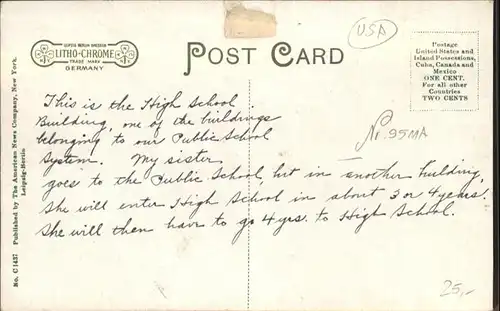 LEIPZIG BERLIN DRESDEN
LITHO-CHROME
TRADE MARK
GERMANY
POST CARD
USA
Postage
United States and
Island Possessions,
Cuba, Canada and
Mexico
ONE CENT.
For all other
Countries
TWO CENTS
This is the High School
Building, one of the buildings
belonging to our Public School
System. My sister
goes to the Public School, but in another building,
She will enter High School in about 3 or 4 years.
She will then have to go 4 yrs. to High School.
95MA
25,-
No. C1437 Published by The American News Company, New York.
Leipzig-Berlin